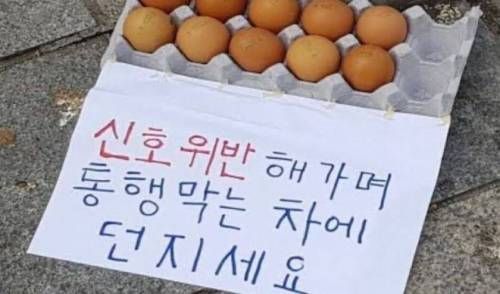 신호위반 해가며
통행막는 차에
던지세요